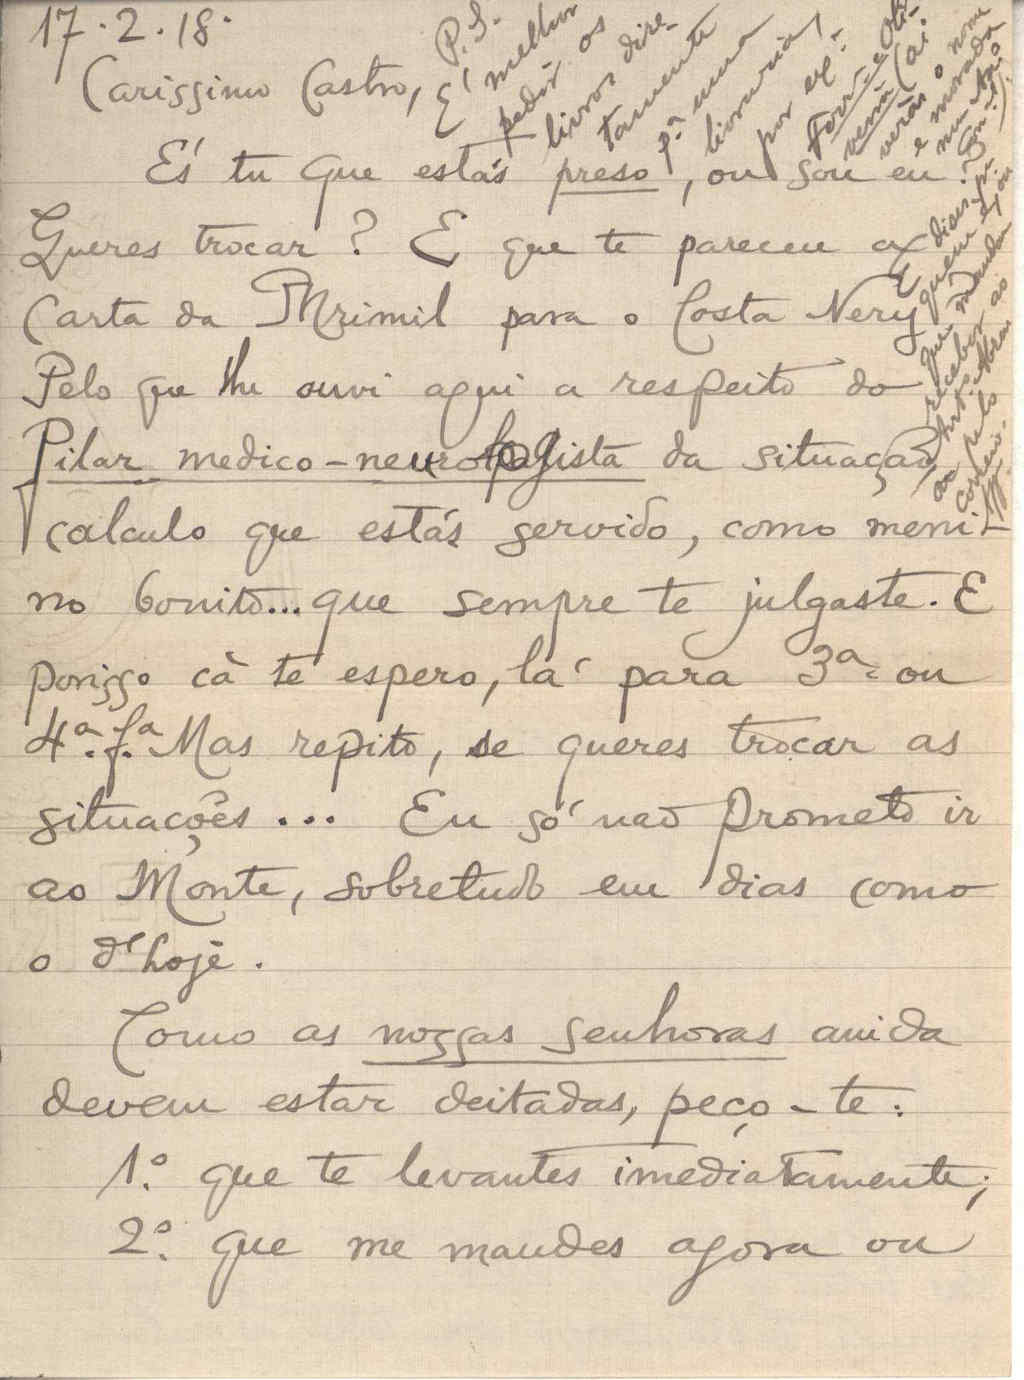 17.2.18.
Carissimo Castro,
És tu que estás preso, ou sou eu?
Queres trocar? E que te pareceu a
Carta da Mrimil para o Costa Nery?
Pelo que lhe ouvi aqui a respeito do
Pilar medico-neurologista da situação,
calculo que estás servido, como meni-
no bonito... que sempre te julgaste. E
porisso cà te espero, lá para 3ª. ou
4ª. fª. Mas repito, se queres trocar as
situações... Eu só nao prometo ir
ao Monte, sobretudo em dias como
o d'hoje.
Como as nossas senhoras ainda
devem estar deitadas, peço-te:
1º. que te levantes imediatamente;
2º. que me mandes agora ou
P.S.
É melhor
pedir os
livros dire-
tamente
pª. uma
livraria,
por ex.
verás o nome
e morada
E dizes
quem
que mandou
receber ao
pelo
correio.